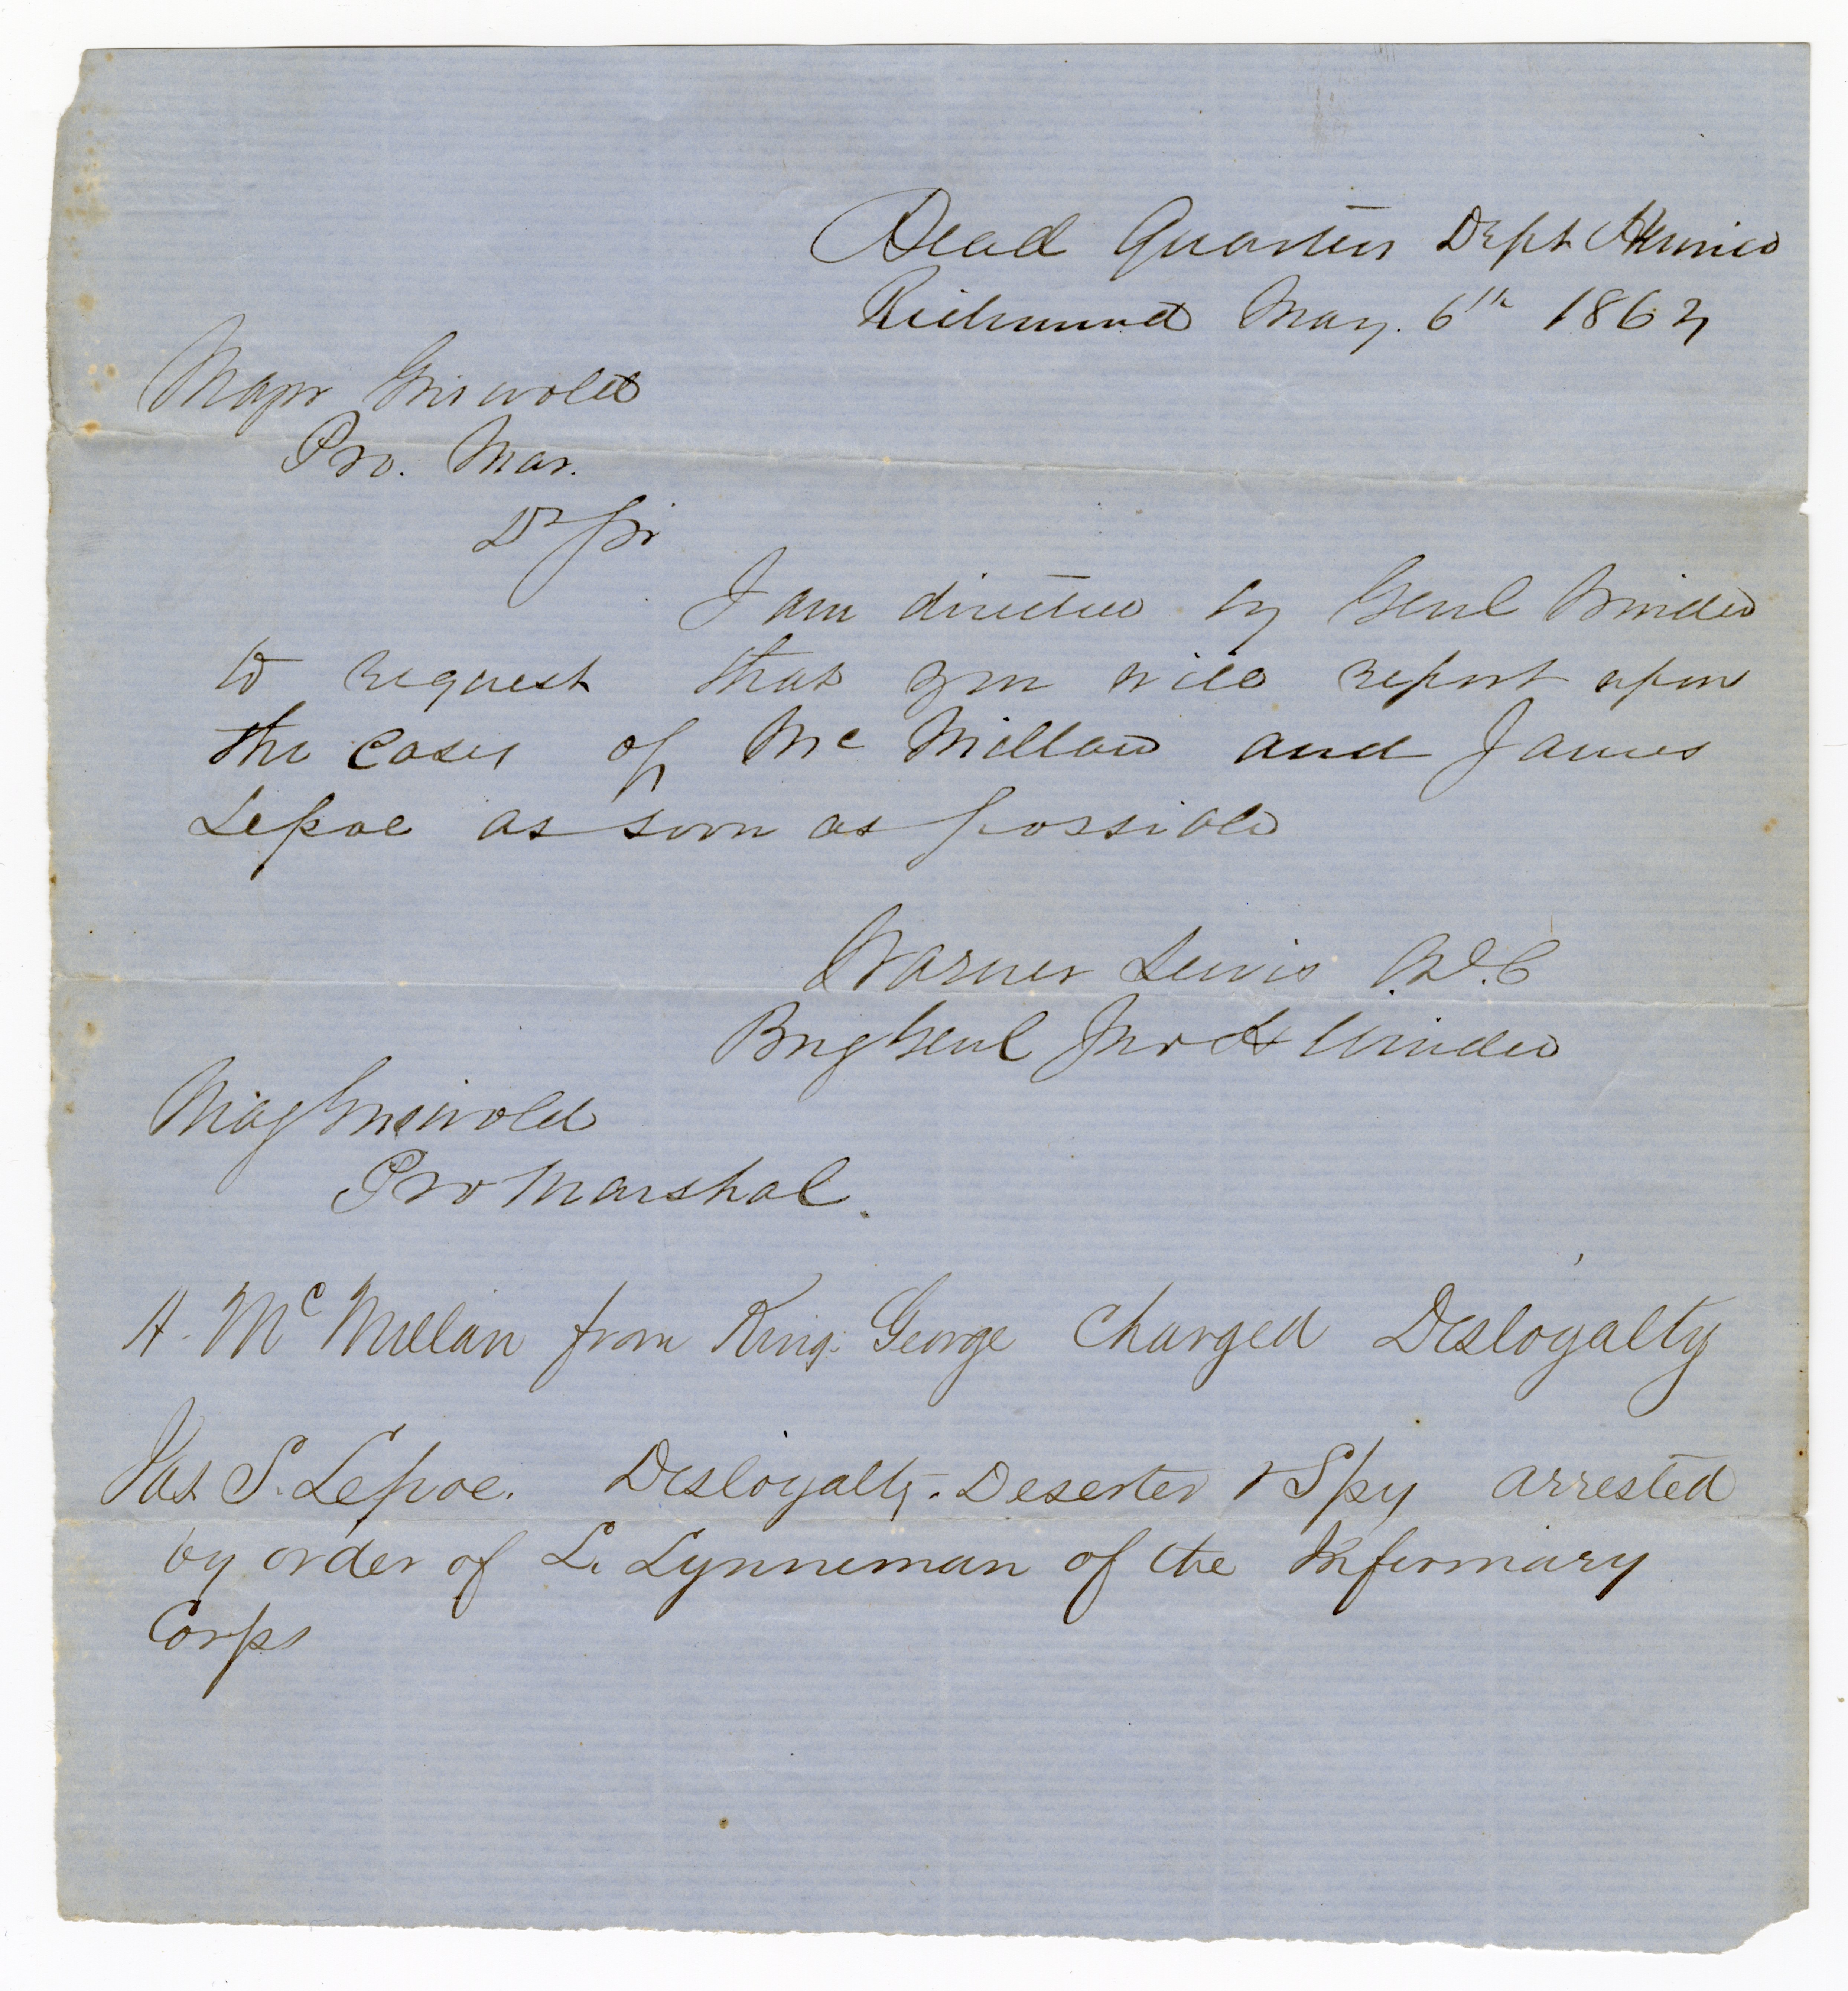 Head Quarters Dept Henrico
Richmond May. 6th 1862
Major Griswold
Pro. Mar.
Dr Sir
I am directed by Genl Winder
to request that you will report upon
the cases of Mc Millan and James
Lepoe as soon as possible
Warner Lewis A.D.C
Brig Genl Jno H Winder
Maj Griswold
Pro Marshal.
H. Mc Millan from King George Charged Disloyalty
Jas. S. Lepoe. Disloyalty. Deserter & Spy arrested
by order of L. Lynneman of the Infirmary
Corps